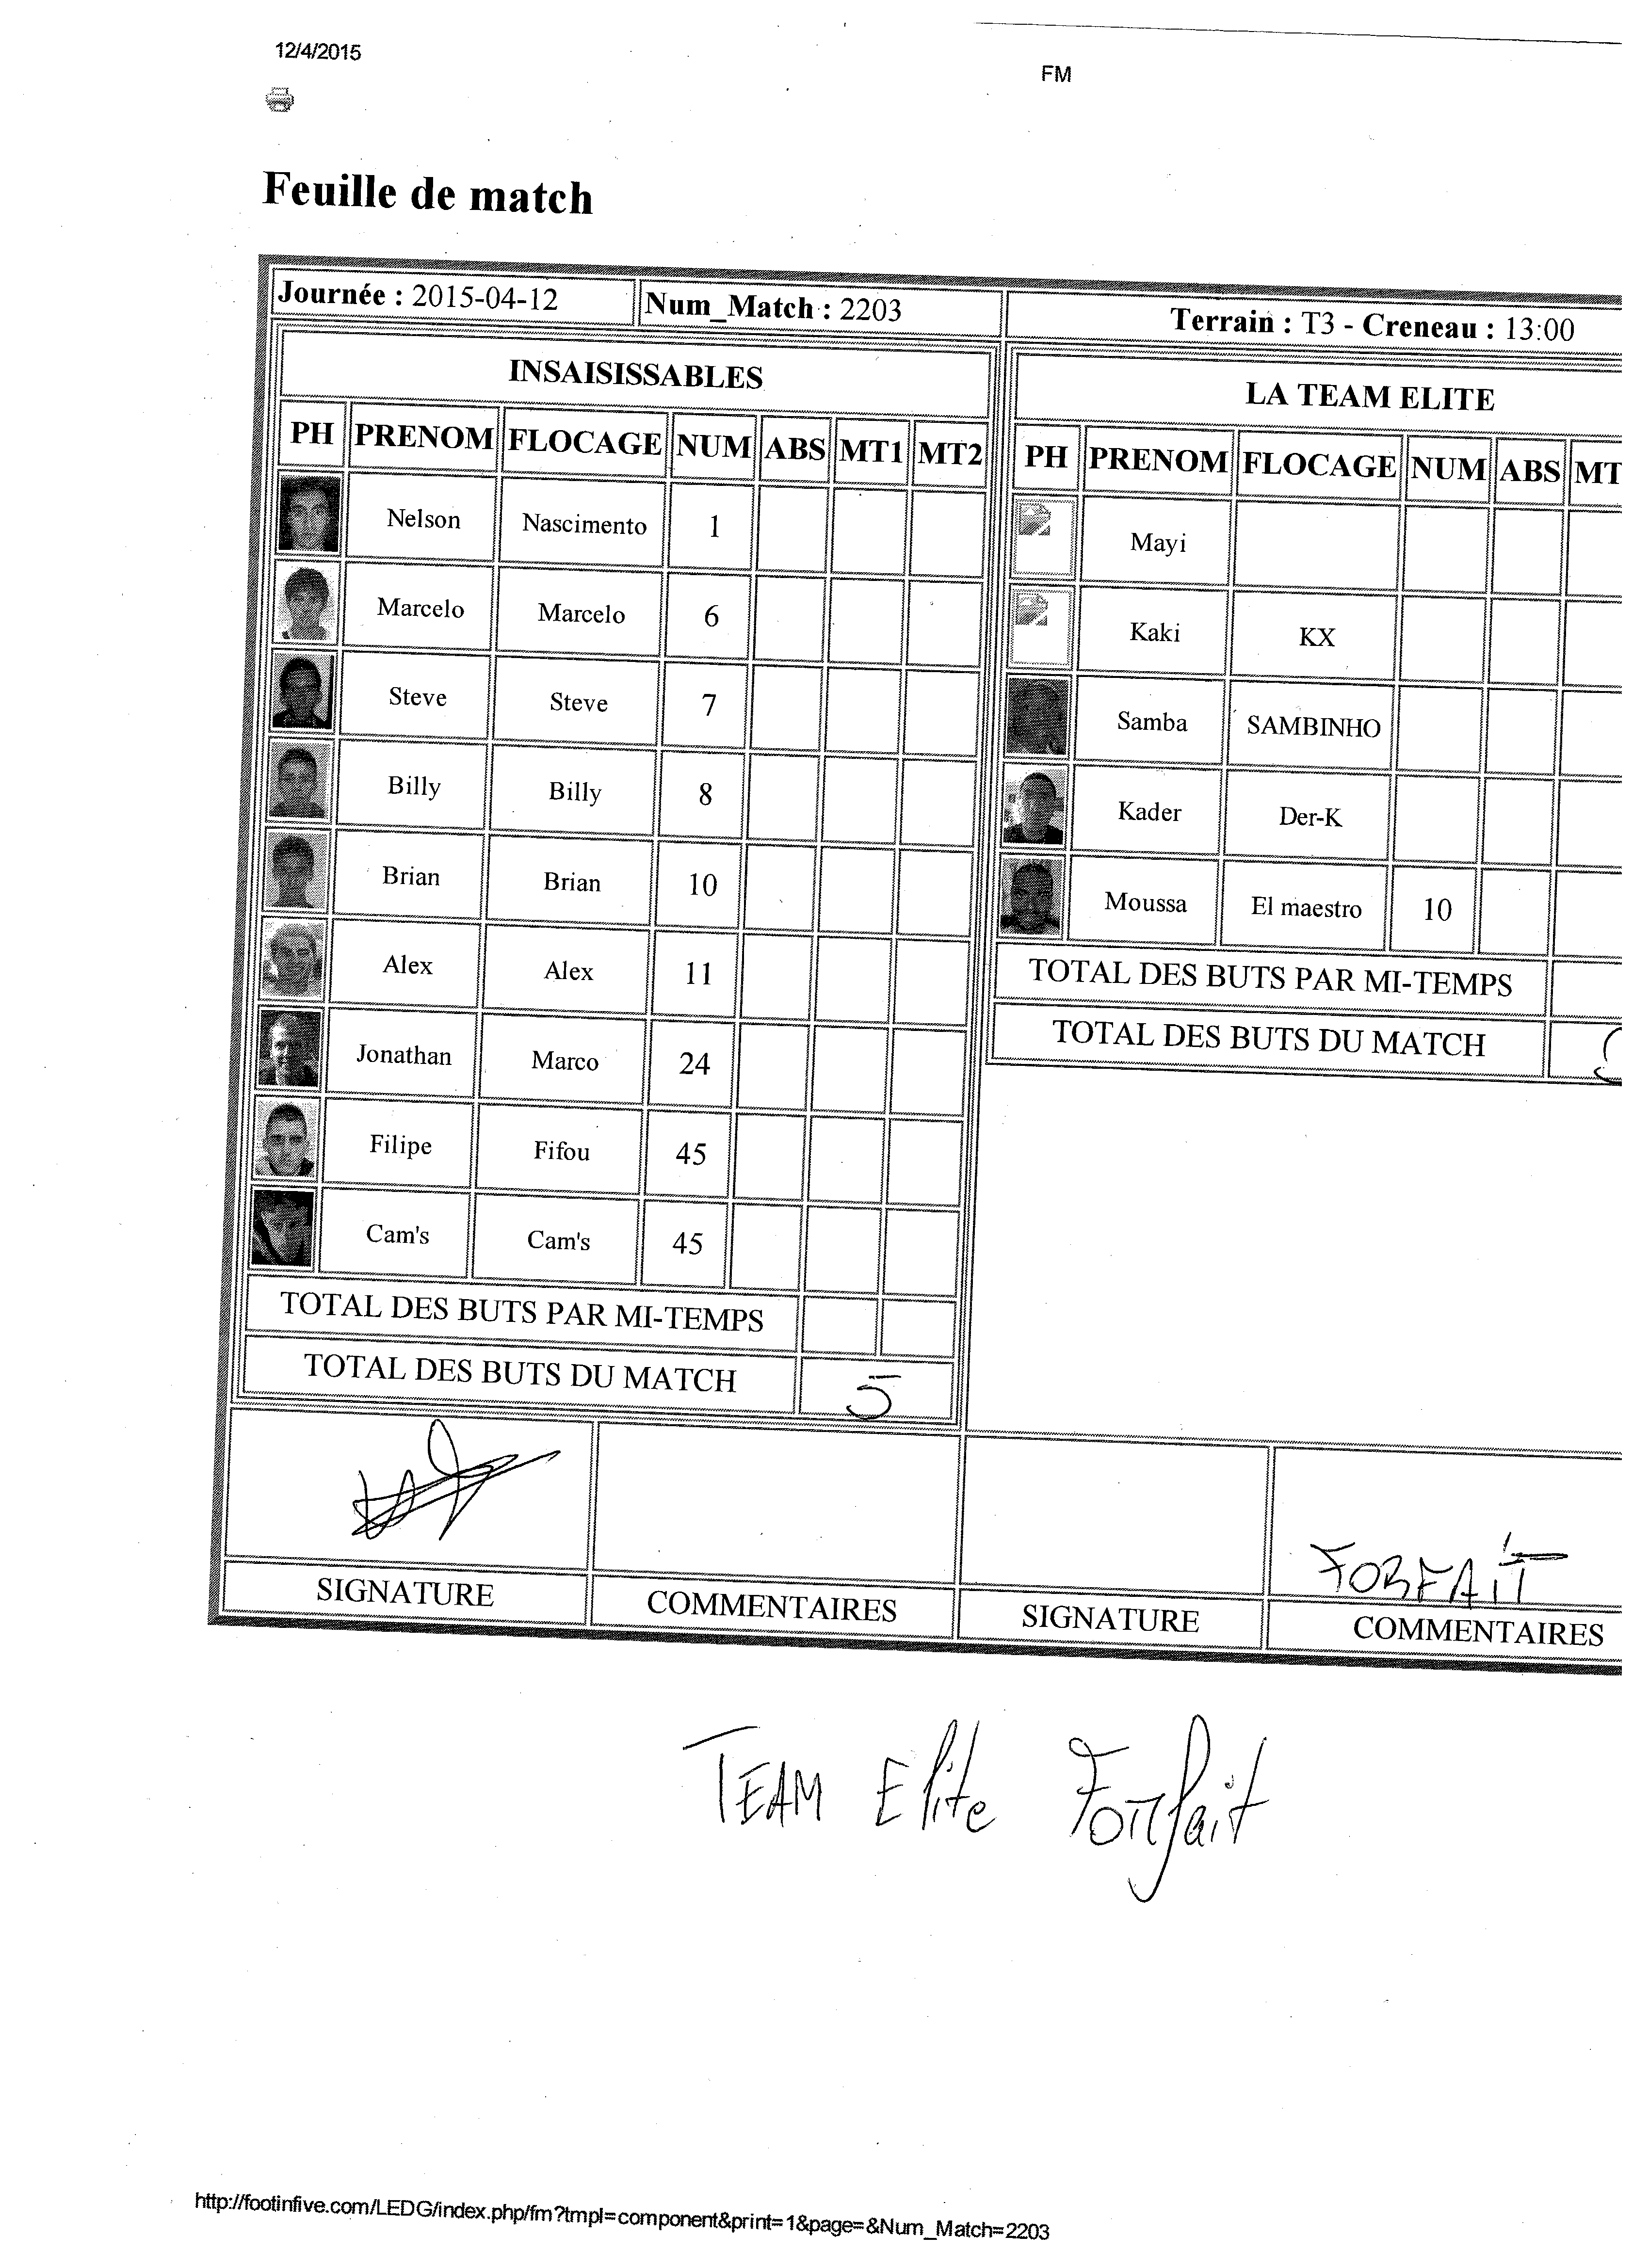 12/4/2015
FM
Feuille de match
Journée : 2015-04-12 Num_Match : 2203 Terrain : T3 - Creneau : 13:00
INSAISISSABLES
PH PRENOM FLOCAGE NUM ABS MT1 MT2
Nelson Nascimento 1
Marcelo Marcelo 6
Steve Steve 7
Billy Billy 8
Brian Brian 10
Alex Alex 11
Jonathan Marco 24
Filipe Fifou 45
Cam's Cam's 45
TOTAL DES BUTS PAR MI-TEMPS
TOTAL DES BUTS DU MATCH 5
LA TEAM ELITE
PH PRENOM FLOCAGE NUM ABS MT
Mayi
Kaki KX
Samba SAMBINHO
Kader Der-K
Moussa El maestro 10
TOTAL DES BUTS PAR MI-TEMPS
TOTAL DES BUTS DU MATCH
FORFAIT
SIGNATURE COMMENTAIRES SIGNATURE COMMENTAIRES
TEAM Elite Forfait
http://footinfive.com/LEDG/index.php/fm?tmpl=component&print=1&page=&Num_Match=2203